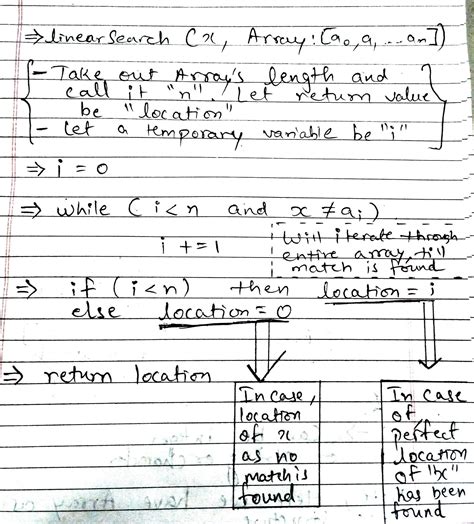 ⇒ linearSearch (x, Array:[a₀,a, ...aₙ])
- Take out Array's length and
call it "n". Let return value
be "location"
- let a temporary variable be "i"
⇒ i = 0
⇒ while (i<n and x ≠ aᵢ)
i += 1
Will iterate through
entire array, till
match is found
⇒ if (i<n) then location = i
else location = 0
⇒ return location
In case,
location
of x
as no
match is
found
In case
of
perfect
location
of "x"
has been
found